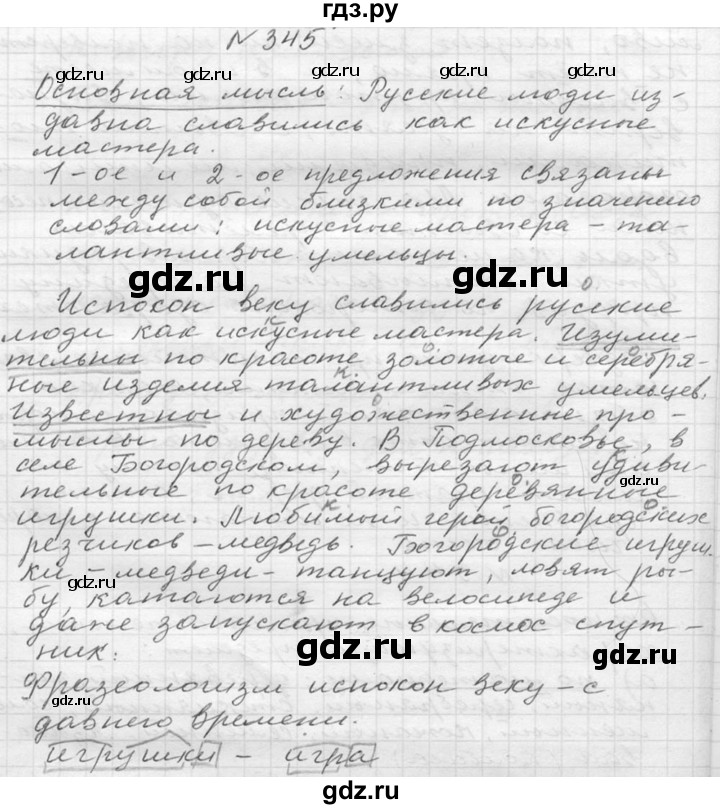 гдз.ру
№ 345
gdz.ru gdz.ru gdz.ru gdz.ru
Основная мысль: Русские люди из-
давна славились как искусные
мастера.
gdz.ru gdz.ru gdz.ru gdz.ru
1-ое и 2-ое предложения связаны
между собой близкими по значению
словами: искусные мастера - та-
лантливые умельцы.
gdz.ru gdz.ru
Испокон веку славились русские
люди как искусные мастера. Изуми-
тельны по красоте золотые и серебря-
ные изделия талантливых умельцев.
gdz.ru gdz.ru gdz.ru gdz.ru
Известны и художественные про-
мыслы по дереву. В Подмосковье, в
селе Богородском, вырезают удиви-
тельные по красоте деревянные
gdz.ru gdz.ru gdz.ru gdz.ru
игрушки. Любимый герой богородских
резчиков - медведь. Богородские игруш-
ки - медведи - танцуют, ловят ры-
бу, катаются на велосипеде и
gdz.ru gdz.ru gdz.ru gdz.ru
даже запускают в космос спут-
ник.
gdz.ru gdz.ru
Фразеологизм испокон веку - с
давнего времени.
gdz.ru gdz.ru gdz.ru gdz.ru
игрушки - игра